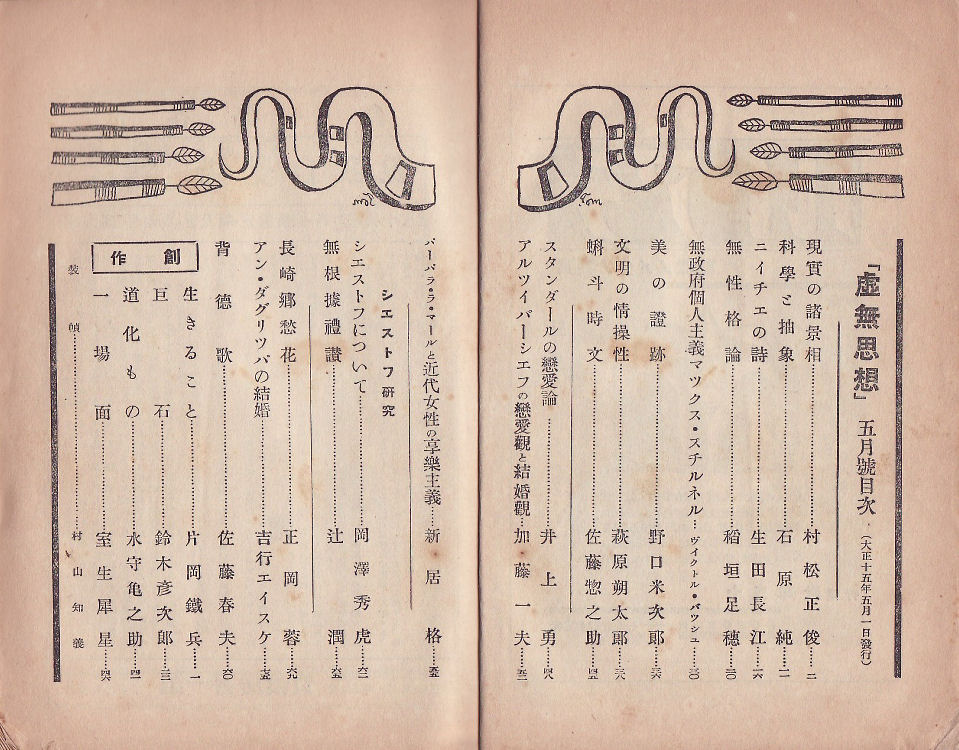 「虚無思想」 五月號目次 (大正十五年五月一日發行)
現實の諸景相……村松正俊……二
科學と抽象……石原純……一一
ニイチエの詩……生田長江……一六
無性格論……稻垣足穗……二〇
無政府個人主義マツクス・スチルネル…ヴイクトル・バツシユ……三〇
美の證跡……野口米次郎……三六
文明の情操性……萩原朔太郎……三八
蝌斗時文……佐藤惣之助……四五
スタンダールの戀愛論……井上勇……四八
アルツイバーシエフの戀愛觀と結婚觀…加藤一夫……五二
バーバラ・ラ・マールと近代女性の享樂主義……新居格……五五
シエストフ研究
シエストフについて……岡澤秀虎……六二
無根據禮讃……辻潤……六五
長崎郷愁花……正岡蓉……六九
アン・ダグリツバの結婚……吉行エイスケ……五五
背德歌……佐藤春夫……六〇
創作
生きること……片岡鐵兵……一
巨石……鈴木彥次郎……二三
道化もの……水守亀之助……四一
一場面……室生犀星……四六
裝幀……村山知義
Tom
Tom